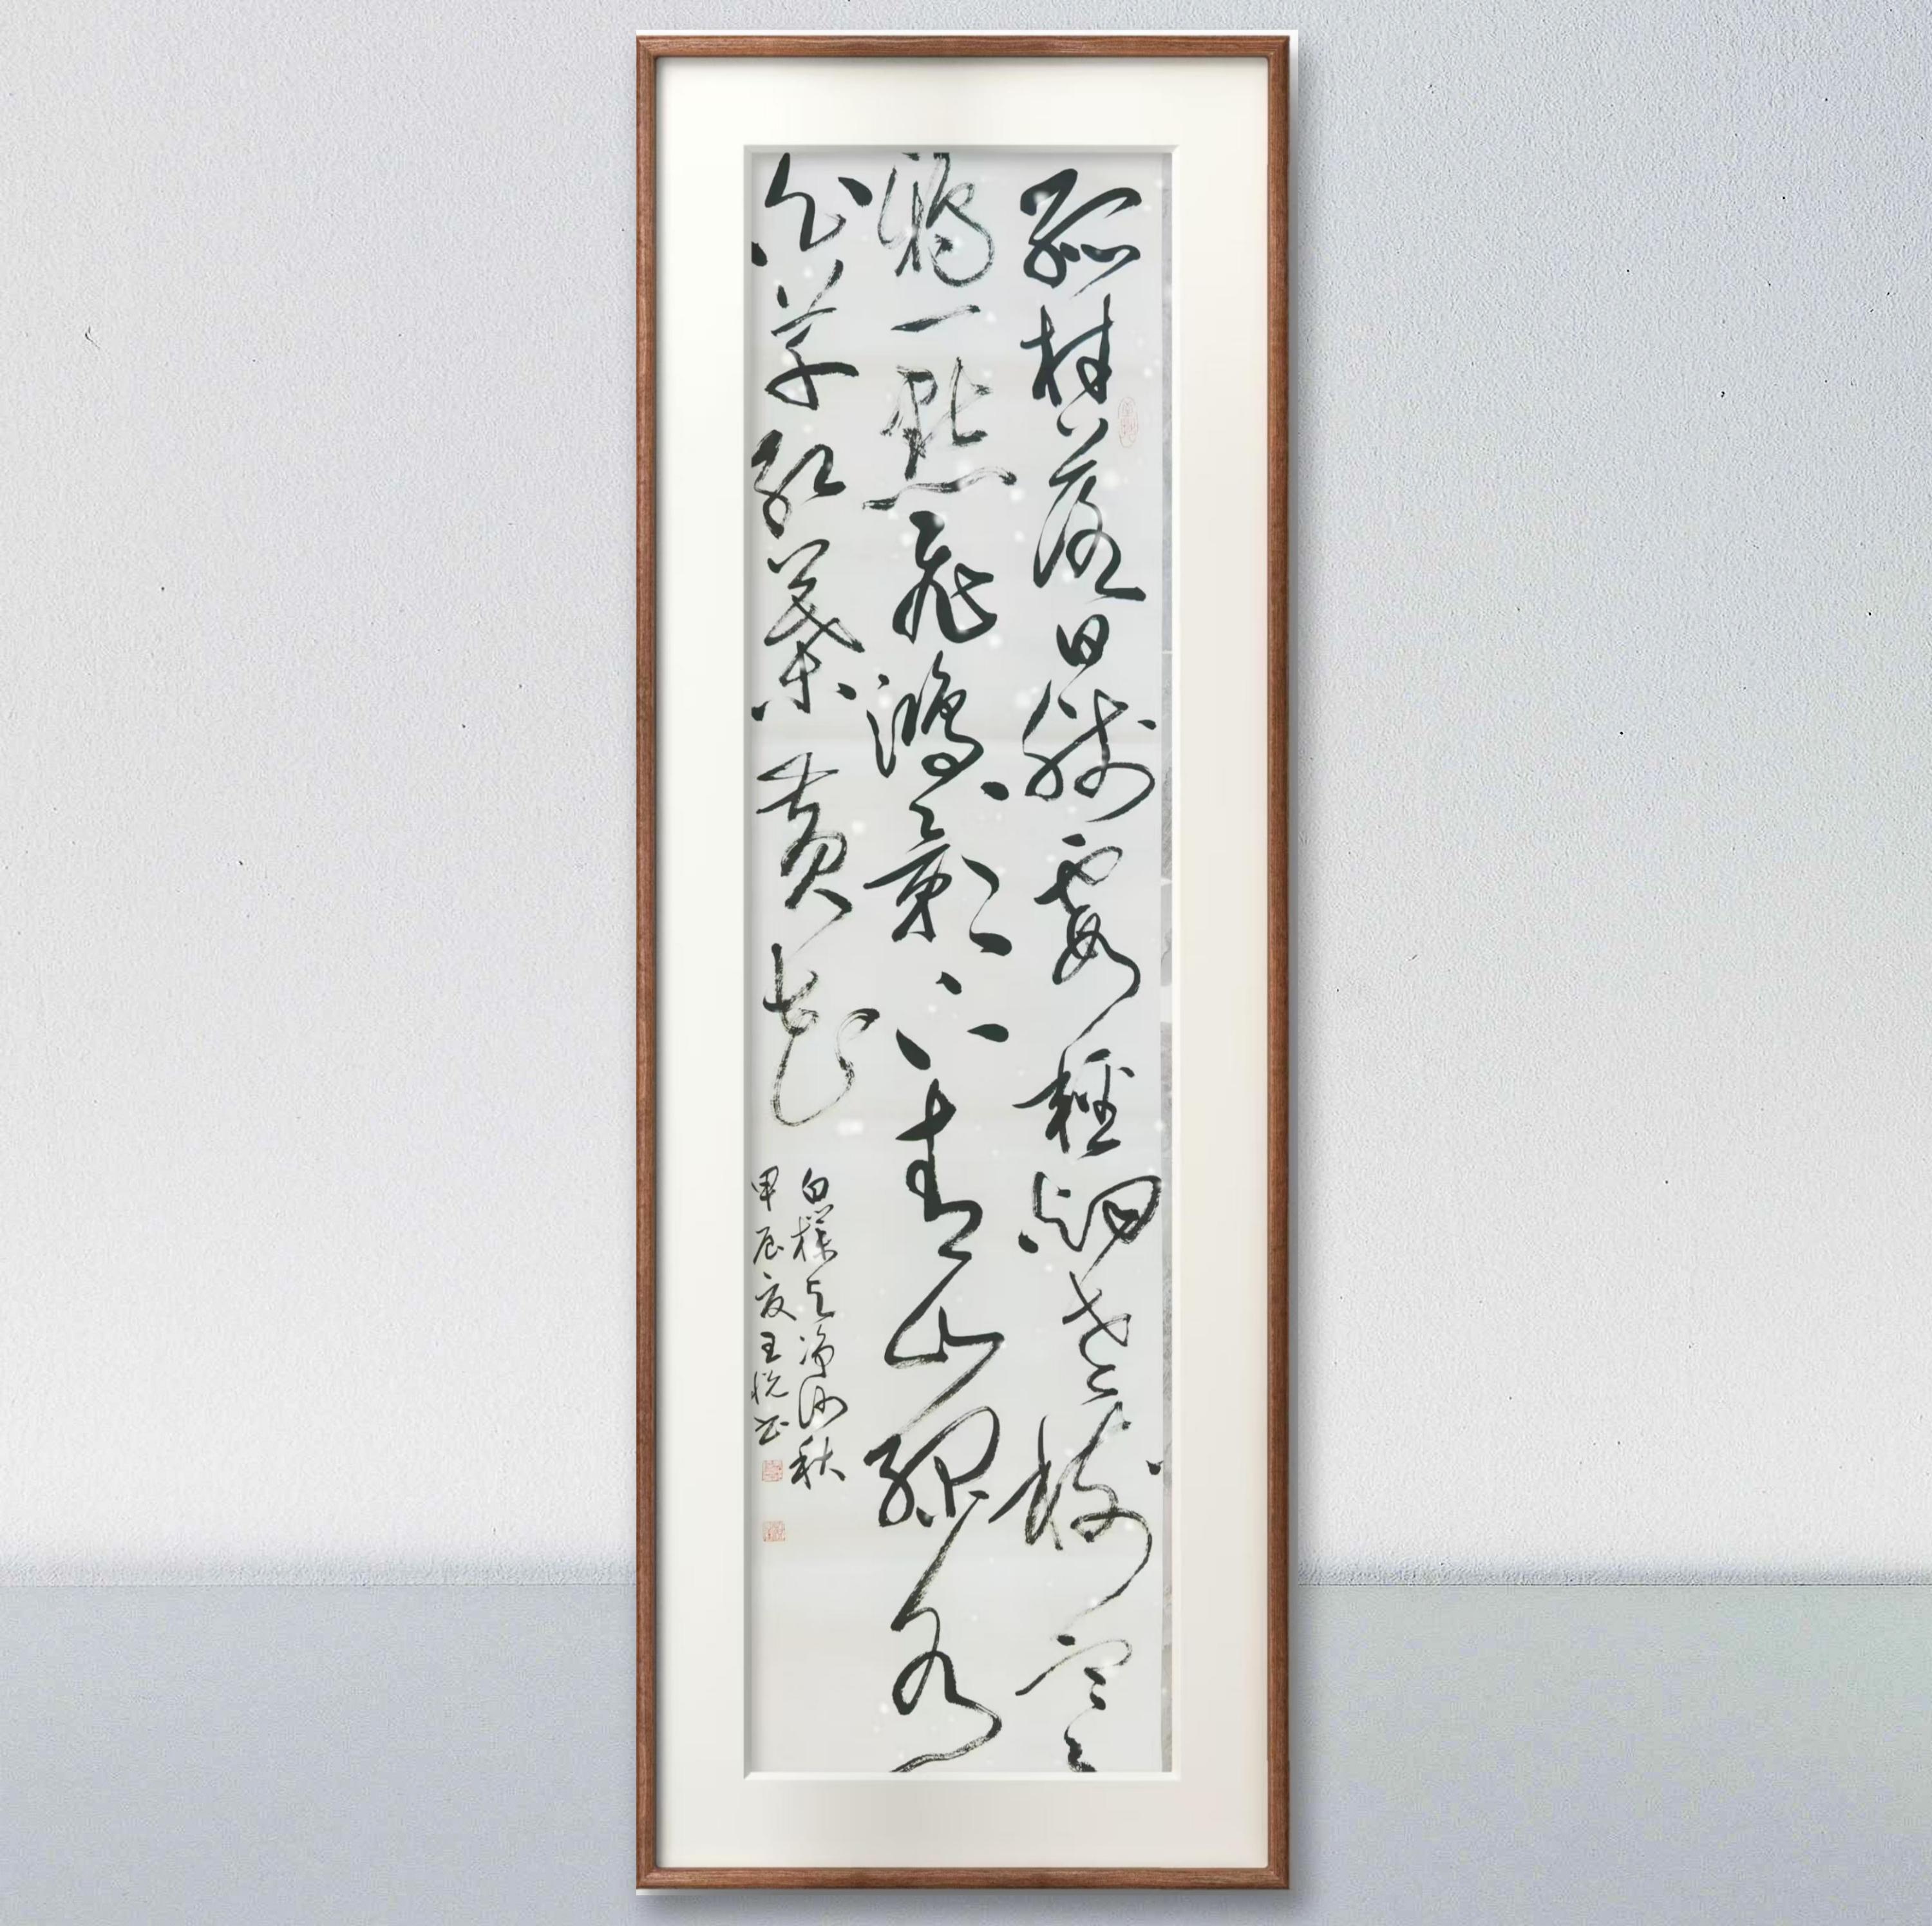 孤村落日残霞轻烟老树寒
鸦一点飞鸿影下青山绿水
白草红叶黄花
白朴天净沙秋
甲辰夏王悦书